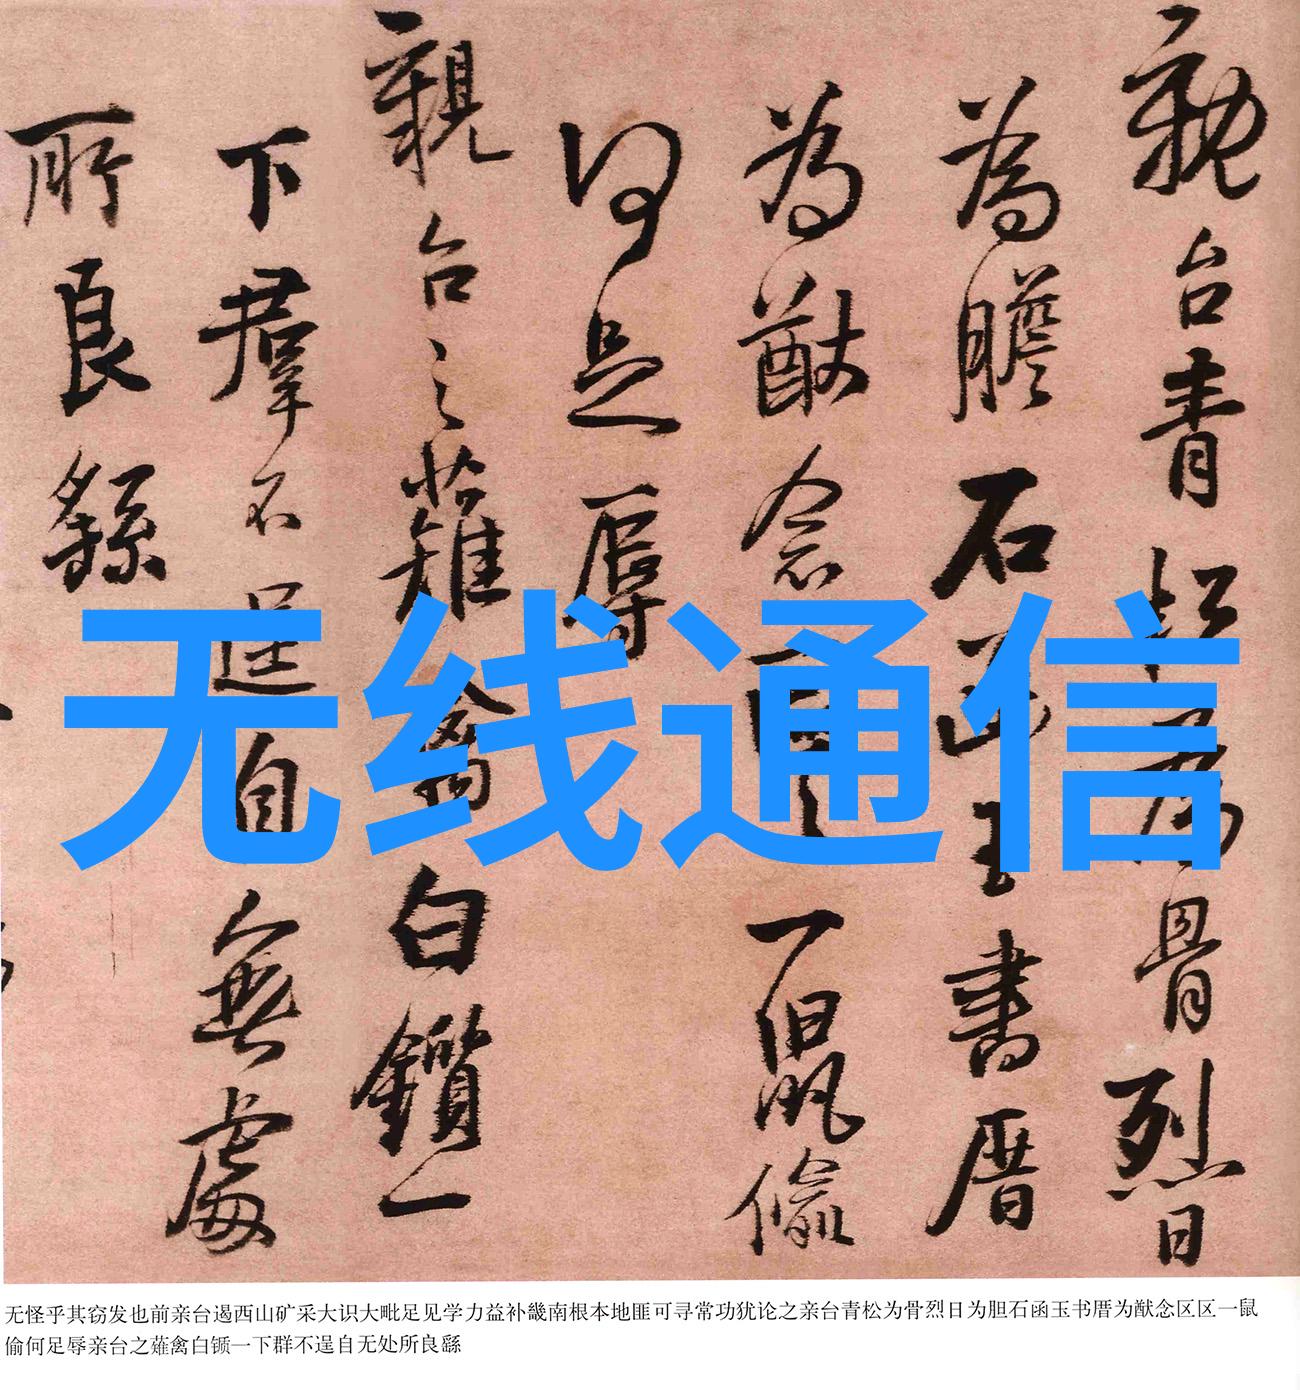 親台青松為骨烈日
為膽石函玉書厝
為猷念區區一鼠偷
何足辱
親台之薙禽白鑕一
下群不逞自無處
所良繇
无线通信
无怪乎其窃发也前亲台遏西山矿采大识大毗足见学力益补畿南根本地匪可寻常功犹论之亲台青松为骨烈日为胆石函玉书厝为猷念区区一鼠
偷何足辱亲台之薙禽白锧一下群不逞自无处所良繇